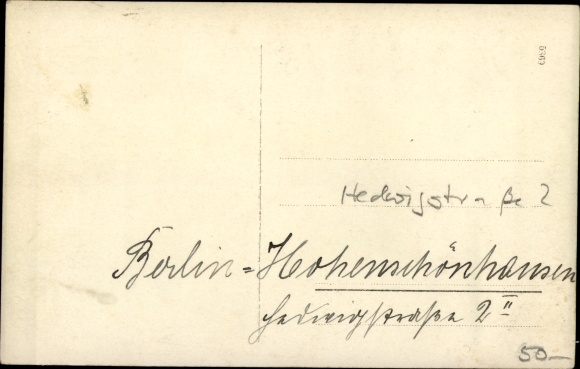 6969
Hedwigstraße 2
Berlin=Hohenschönhausen
Hedwigstraße 2 II
50.–